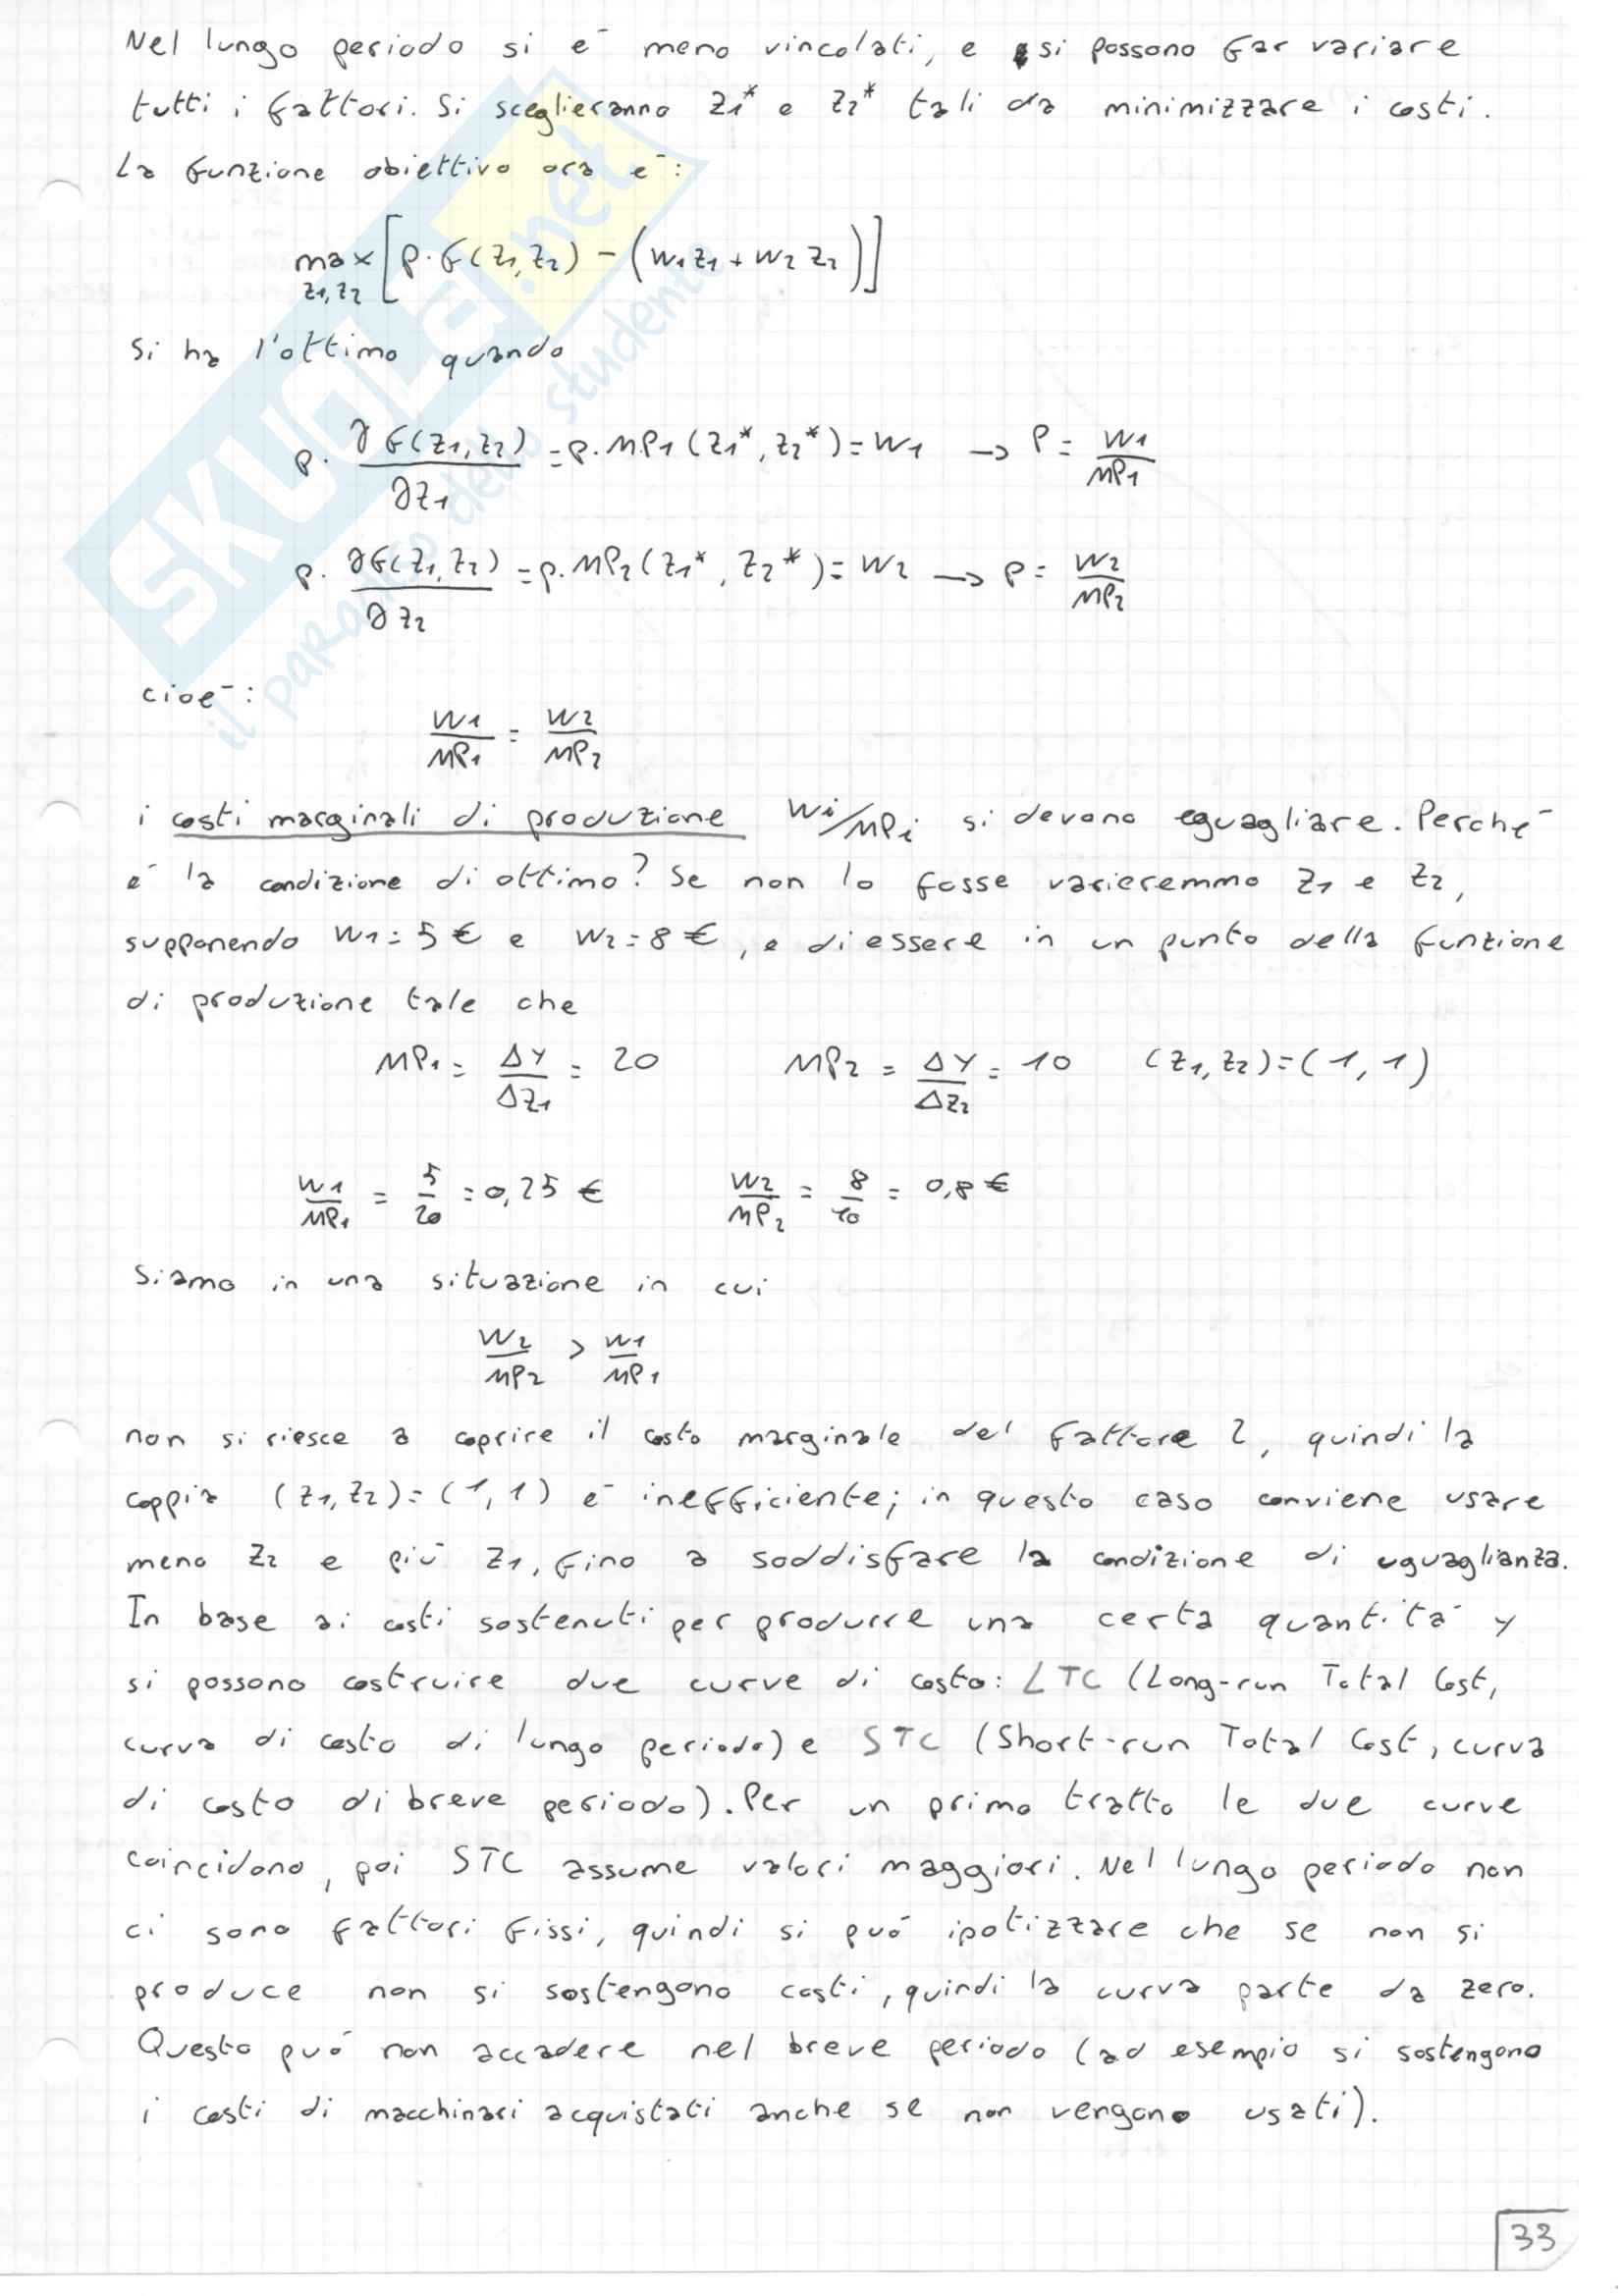 Nel lungo periodo si è meno vincolati, e si possono far variare
tutti i fattori. Si sceglieranno z1* e z2* tali da minimizzare i costi.
La funzione obiettivo ora è:
max z1,z2 [p·f(z1,z2) - (w1z1 + w2z2)]
Si ha l'ottimo quando
p· ∂f(z1,z2)/∂z1 = p·MP1(z1*,z2*) = w1 → p = w1/MP1
p· ∂f(z1,z2)/∂z2 = p·MP2(z1*,z2*) = w2 → p = w2/MP2
cioè:
w1/MP1 = w2/MP2
i costi marginali di produzione wi/MPi si devono eguagliare. Perché
è la condizione di ottimo? Se non lo fosse varieremmo z1 e z2,
supponendo w1 = 5 € e w2 = 8 €, e di essere in un punto della funzione
di produzione tale che
MP1 = Δy/Δz1 = 20 MP2 = Δy/Δz2 = 10 (z1,z2) = (1,1)
w1/MP1 = 5/20 = 0,25 € w2/MP2 = 8/10 = 0,8 €
Siamo in una situazione in cui
w2/MP2 > w1/MP1
non si riesce a coprire il costo marginale del fattore 2, quindi la
coppia (z1,z2) = (1,1) è inefficiente; in questo caso conviene usare
meno z2 e più z1, fino a soddisfare la condizione di uguaglianza.
In base ai costi sostenuti per produrre una certa quantità y
si possono costruire due curve di costo: LTC (Long-run Total Cost,
curva di costo di lungo periodo) e STC (Short-run Total Cost, curva
di costo di breve periodo). Per un primo tratto le due curve
coincidono, poi STC assume valori maggiori. Nel lungo periodo non
ci sono fattori fissi, quindi si può ipotizzare che se non si
produce non si sostengono costi, quindi la curva parte da zero.
Questo può non accadere nel breve periodo (ad esempio si sostengono
i costi di macchinari acquistati anche se non vengono usati).
33
SKUOLA.net
il paradiso dello studente